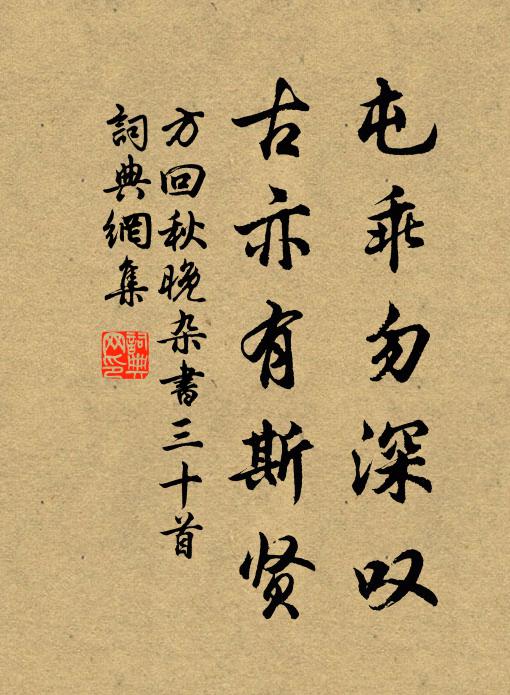 屯乖勿深叹
古亦有斯贤
方回秋晚杂书三十首
詞典網集
詞典网印